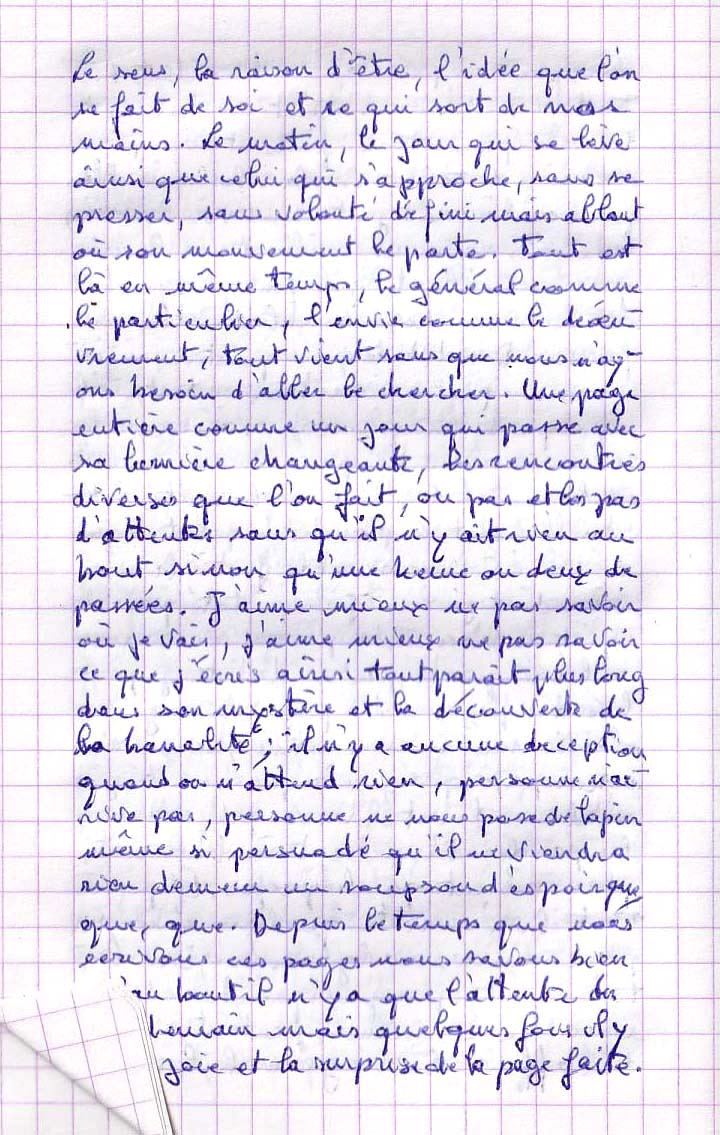 Le sens, la raison d'être, l'idée que l'on
se fait de soi et ce qui sort de nos
mains. Le matin, le jour qui se lève
ainsi que celui qui s'approche, sans se
presser, sans volonté défini mais allant
où son mouvement le porte. Tout est
là en même temps, le général comme
le particulier, l'envie comme le désœu-
vrement, tout vient sans que nous n'ay-
ons besoin d'aller le chercher. Une page
entière comme un jour qui passe avec
sa lumière changeante, les rencontres
diverses que l'on fait, ou pas et les pas
d'attente sans qu'il n'y ait rien au
bout sinon qu'une heure ou deux de
passées. J'aime mieux ne pas savoir
où je vais, j'aime mieux ne pas savoir
ce que j'écris ainsi tout paraît plus long
dans son mystère et la découverte de
la banalité ; il n'y a aucune déception
quand on n'attend rien, personne n'ar-
rive pas, personne ne nous pose de lapin
même si persuadé qu'il ne viendra
rien demeure un soupçon d'espoir que
que, que. Depuis le temps que nous
écrivons ces pages nous savons bien
bout il n'y a que l'attente du
mais quelques fois il y
joie et la surprise de la page faite.